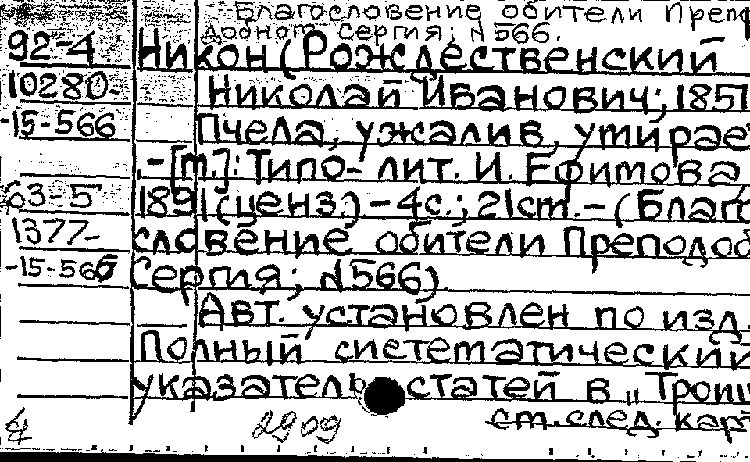 Благословение обители Преп
Сергия; № 566.
92-4 Никон (Рождественский
10280- Николай Иванович; 1851
-15-566 Пчела, ужалив, умирае
.-[м.]: Типо-лит. И. Ефимова,
63-5 1891 (ценз.) - 4с.; 21см. - (Благо
1377- словение обители Преподоб
-15-566 Сергия; №566)
Авт. установлен по изд.
Полный систематический
указатель статей в „Троиц
ст. след. кар
2909